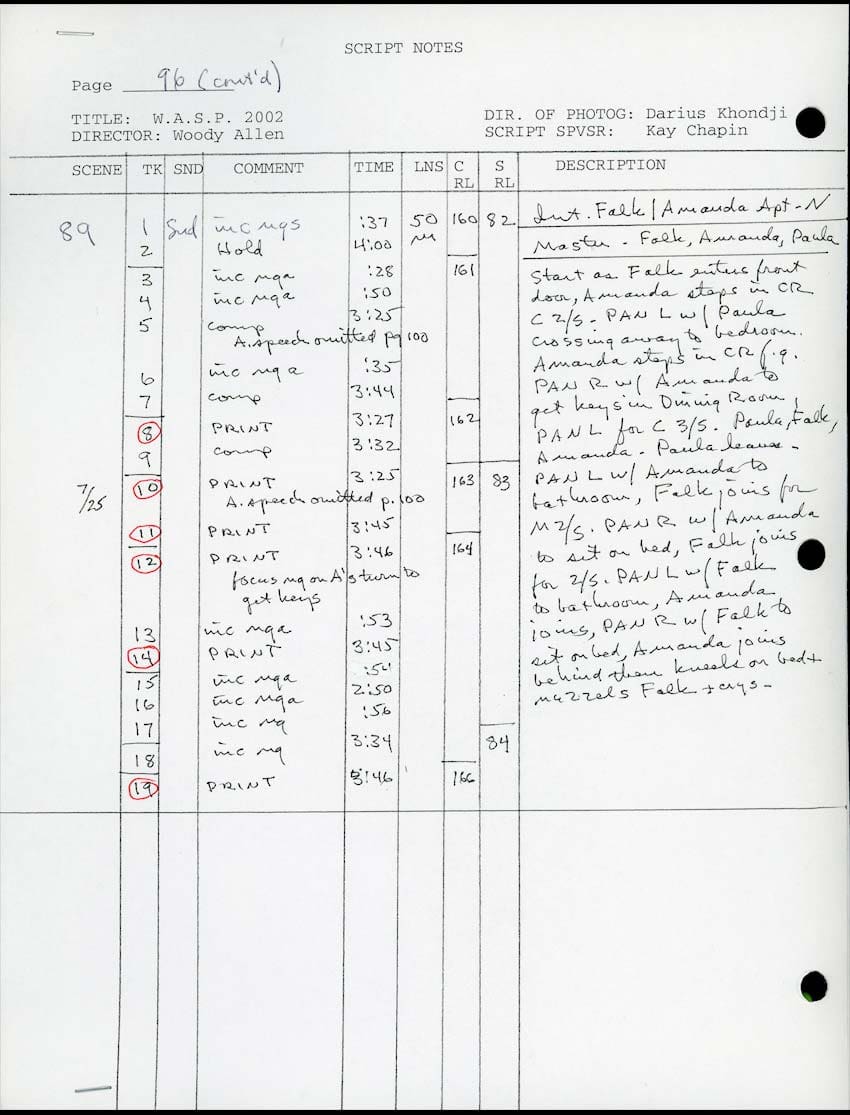 SCRIPT NOTES
Page 96 (cont'd)
TITLE: W.A.S.P. 2002 DIR. OF PHOTOG: Darius Khondji
DIRECTOR: Woody Allen SCRIPT SPVSR: Kay Chapin
SCENE TK SND COMMENT TIME LNS C RL S RL DESCRIPTION
89 1 Snd inc ngs :37 50 160 82 Int. Falk/Amanda Apt-N
2 Hold 4:00 m Master - Falk, Amanda, Paula
3 inc nga :28 161 Start as Falk enters front
4 inc nga :50 door, Amanda steps in CR
5 comp 3:25 C 2/s. PAN L w/ Paula
A. speech omitted pg 100 crossing away to bedroom.
6 inc nga :35 Amanda steps in CR f.g.
7 comp 3:44 PAN R w/ Amanda to
get keys in Dining Room,
8 PRINT 3:27 162 PAN L for C 3/s. Paula, Falk,
9 comp 3:32 Amanda - Paula leaves -
7/25 10 PRINT 3:25 163 83 PAN L w/ Amanda to
A. speech omitted p. 100 bathroom, Falk joins for
11 PRINT 3:45 M2/s. PAN R w/ Amanda
12 PRINT 3:46 164 to sit on bed, Falk joins
focus ng on A's turn to for 2/s. PAN L w/ Falk
get keys to bathroom, Amanda
13 inc nga :53 joins, PAN R w/ Falk to
14 PRINT 3:45 sit on bed, Amanda joins
15 inc nga :54 behind then kneels on bed +
16 inc nga 2:50 nuzzels Falk + crys -
17 inc ng :56
18 inc ng 3:34 84
19 PRINT 3:46 166